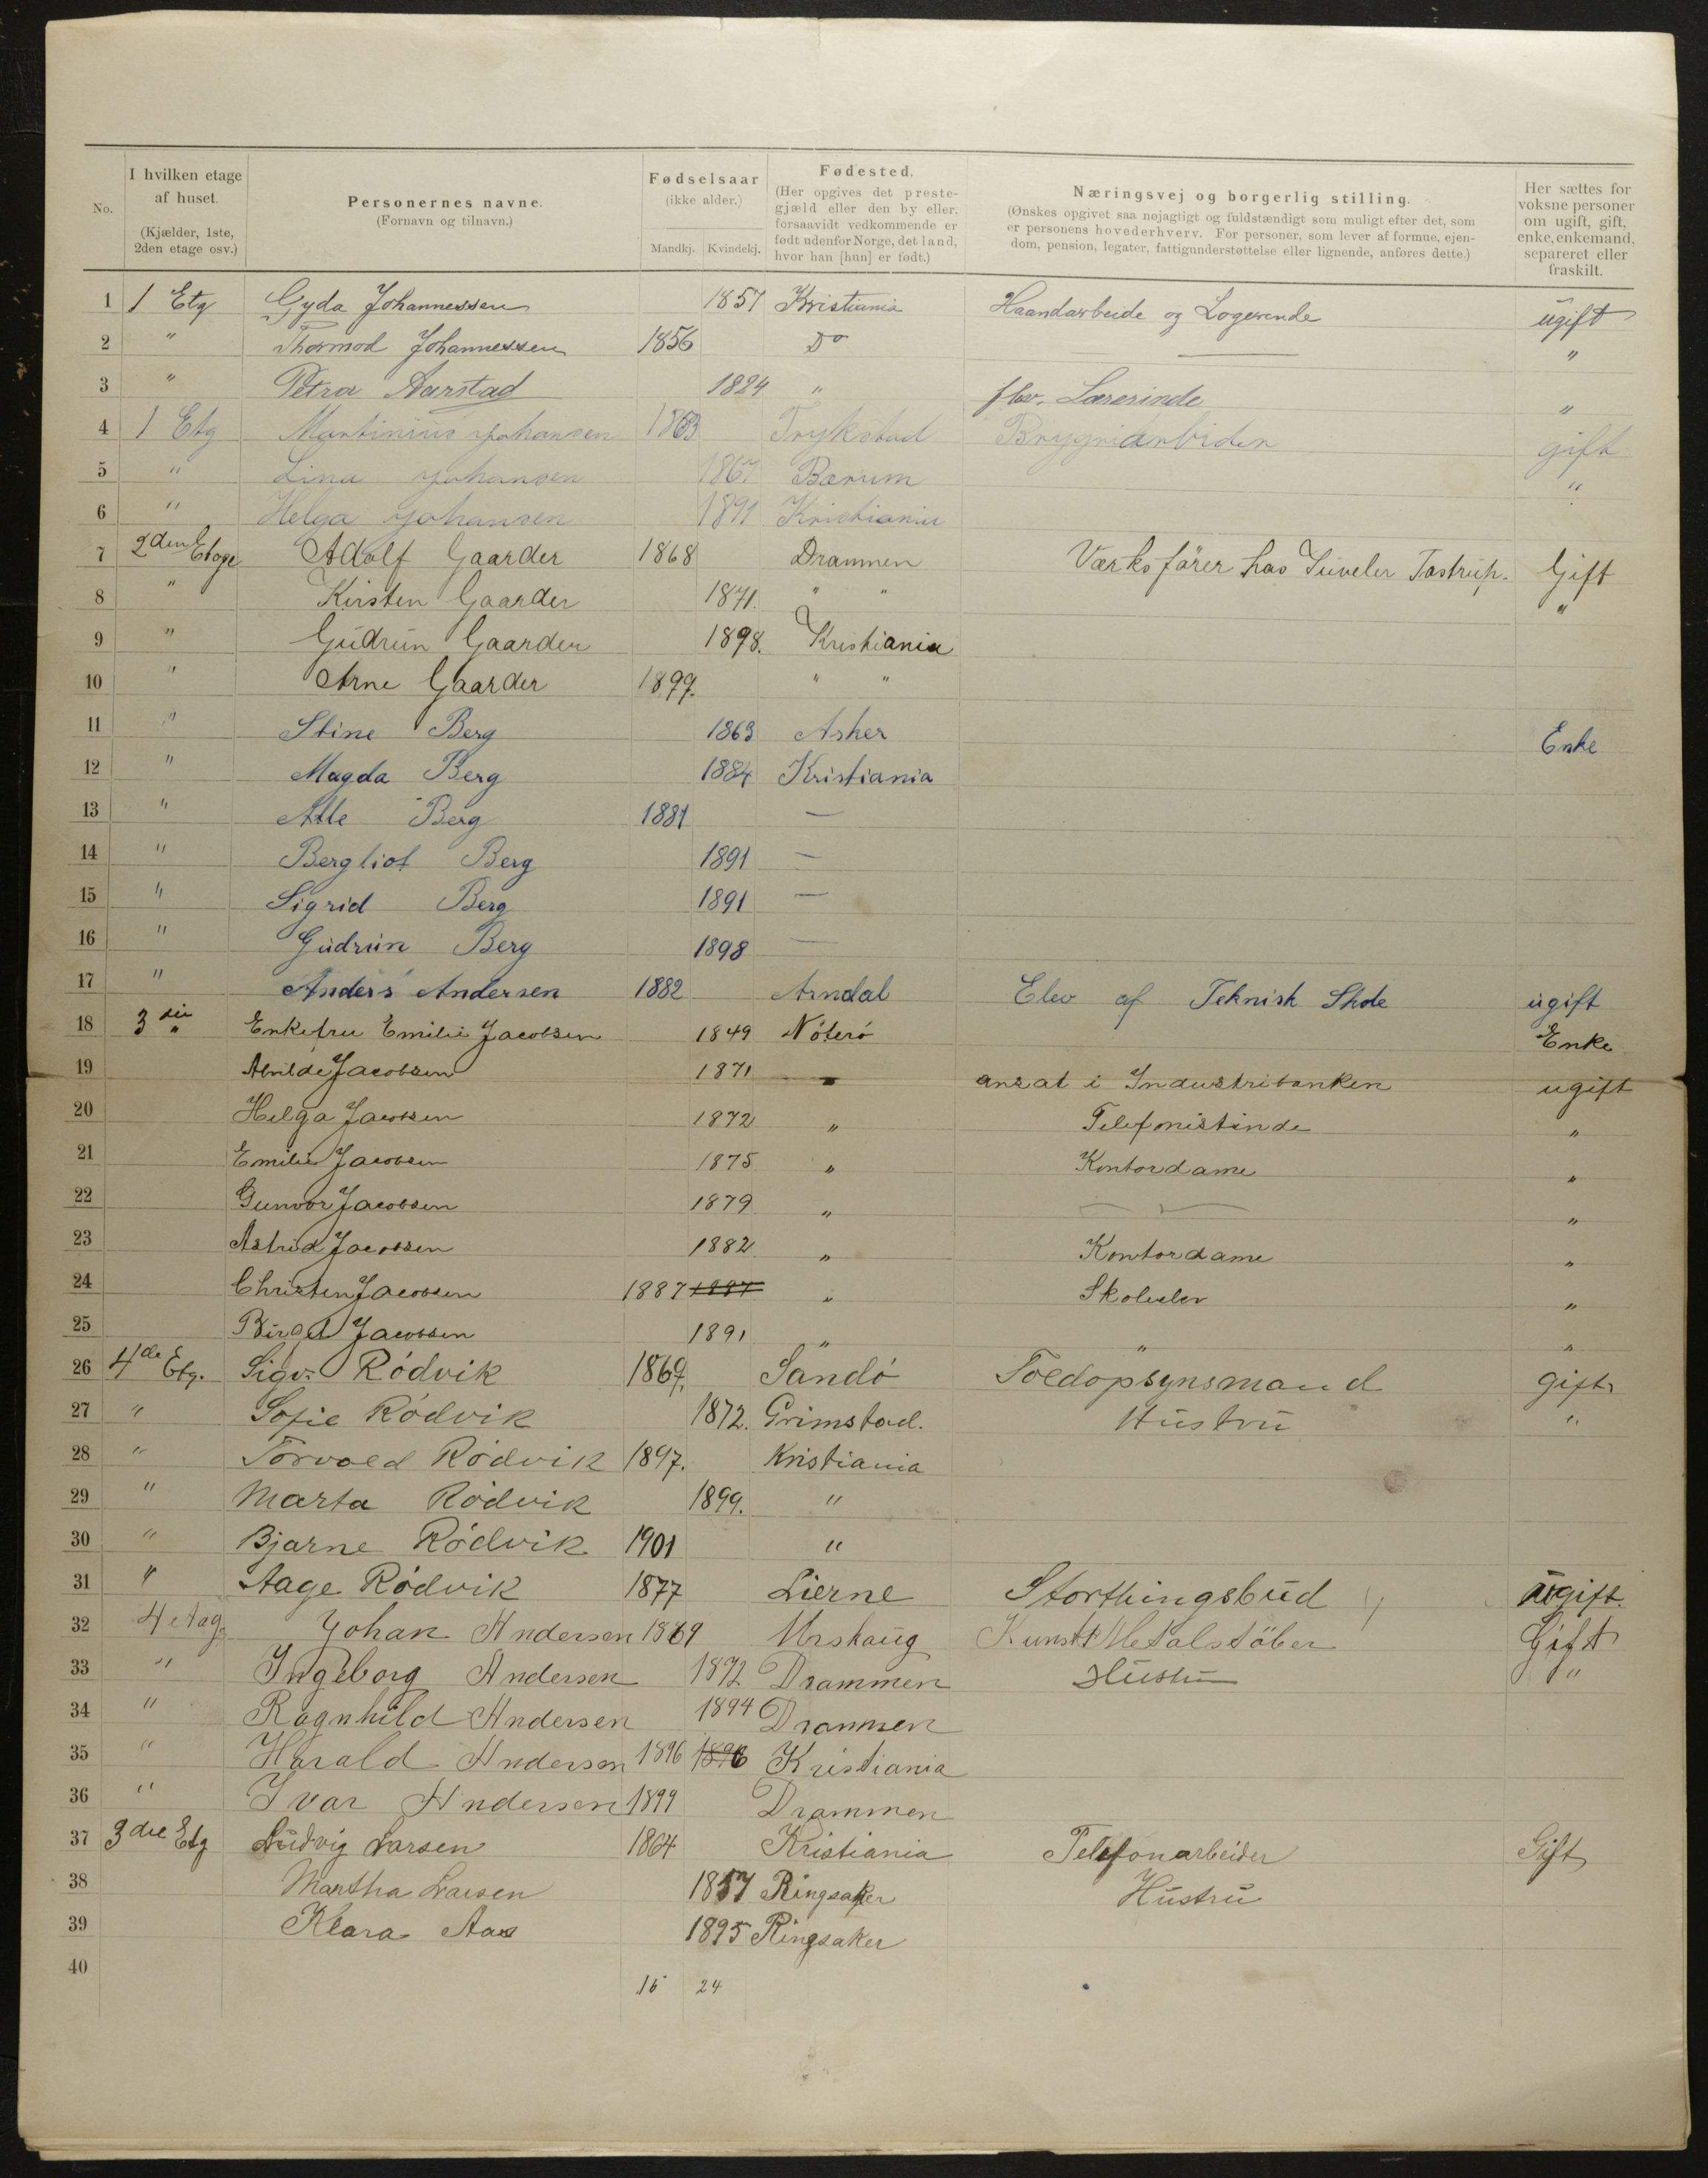 No.
I hvilken etage af huset. (Kjælder, 1ste, 2den etage osv.)
Personernes navne. (Fornavn og tilnavn.)
Fødselsaar (ikke alder.) Mandkj. Kvindekj.
Fødested. (Her opgives det prestegjæld eller den by eller, forsaavidt vedkommende er født udenfor Norge, det land, hvor han [hun] er født.)
Næringsvej og borgerlig stilling. (Ønskes opgivet saa nøjagtigt og fuldstændigt som muligt efter det, som er personens hovederhverv. For personer, som lever af formue, ejendom, pension, legater, fattigunderstøttelse eller lignende, anføres dette.)
Her sættes for voksne personer om ugift, gift, enke, enkemand, separeret eller fraskilt.
1 1 Etg Gyda Johannessen 1857 Kristiania Haandarbeide og Logerende ugift
2 " Thormod Johannessen 1856 Do — "
3 " Petra Aarstad 1824 " fhv. Lærerinde "
4 1 Etg Martinius Johansen 1863 Trykstad Bryggriarbider gift
5 " Lina Johansen 1867 Bærum "
6 " Helga Johansen 1891 Kristiania
7 2den Etage Adolf Gaarder 1868 Drammen Værksfører hos Juveler Tostrup. Gift
8 " Kirsten Gaarder 1871. " " "
9 " Gudrun Gaarder 1898. Kristiania
10 " Arne Gaarder 1899. " "
11 " Stine Berg 1863 Asker Enke
12 " Magda Berg 1884 Kristiania
13 " Atle Berg 1881 —
14 " Bergliot Berg 1891 —
15 " Sigrid Berg 1891 —
16 " Gudrun Berg 1898 —
17 " Anders Andersen 1882 Arndal Elev af Teknisk Skole ugift
18 3die " Enkefru Emilie Jacobsen 1849 Nöterö Enke
19 Alvilde Jacobsen 1871 " ansat i Industribanken ugift
20 Helga Jacobsen 1872 " Telefonistinde "
21 Emilie Jacobsen 1875 " Kontordame "
22 Gunvor Jacobsen 1879 " — "
23 Astrid Jacobsen 1882 " Kontordame "
24 Christen Jacobsen 1887 1887 " Skoleelev "
25 Birgit Jacobsen 1891 " " "
26 4de Etg. Sigv. Rödvik 1869. Sandö Toldopsynsmand gift
27 " Sofie Rödvik 1872. Grimstad. Hustru "
28 " Torvald Rödvik 1897. Kristiania
29 " Marta Rödvik 1899. "
30 " Bjarne Rödvik 1901 "
31 " Aage Rödvik 1877 Lierne Storthingsbud ugift.
32 4 etag. Johan Andersen 1869 Urskaug Kunst Metalstöber Gift
33 " Ingeborg Andersen 1872 Drammen Hustru "
34 " Ragnhild Andersen 1894 Drammen
35 " Harald Andersen 1896 1896 Kristiania
36 " Ivar Andersen 1899 Drammen
37 3die Etg Ludvig Larsen 1864 Kristiania Telefonarbeider Gift
38 Martha Larsen 1857 Ringsaker Hustru
39 Klara Aas 1895 Ringsaker
40
15 24